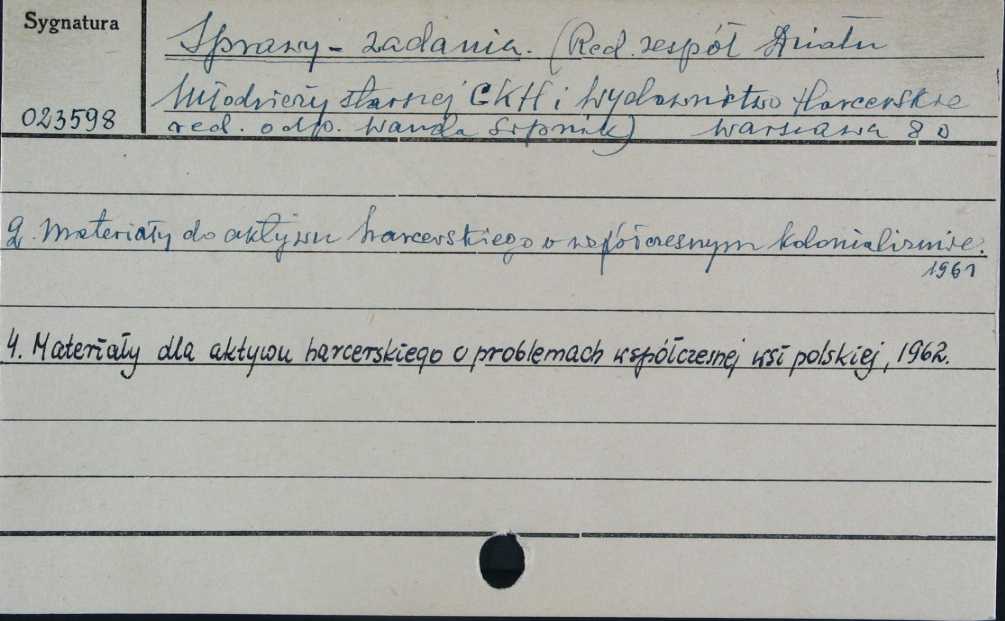 Sygnatura
Sprawy - zadania. (Red. zespół Działu
Młodzieży starszej GKH i Wydawnictwo Harcerskie
023598
red. odp. Wanda) Warszawa 8o
2. Materiały do aktywu harcerskiego o współczesnym kolonializmie.
1961
4. Materiały dla aktywu harcerskiego o problemach współczesnej wsi polskiej, 1962.